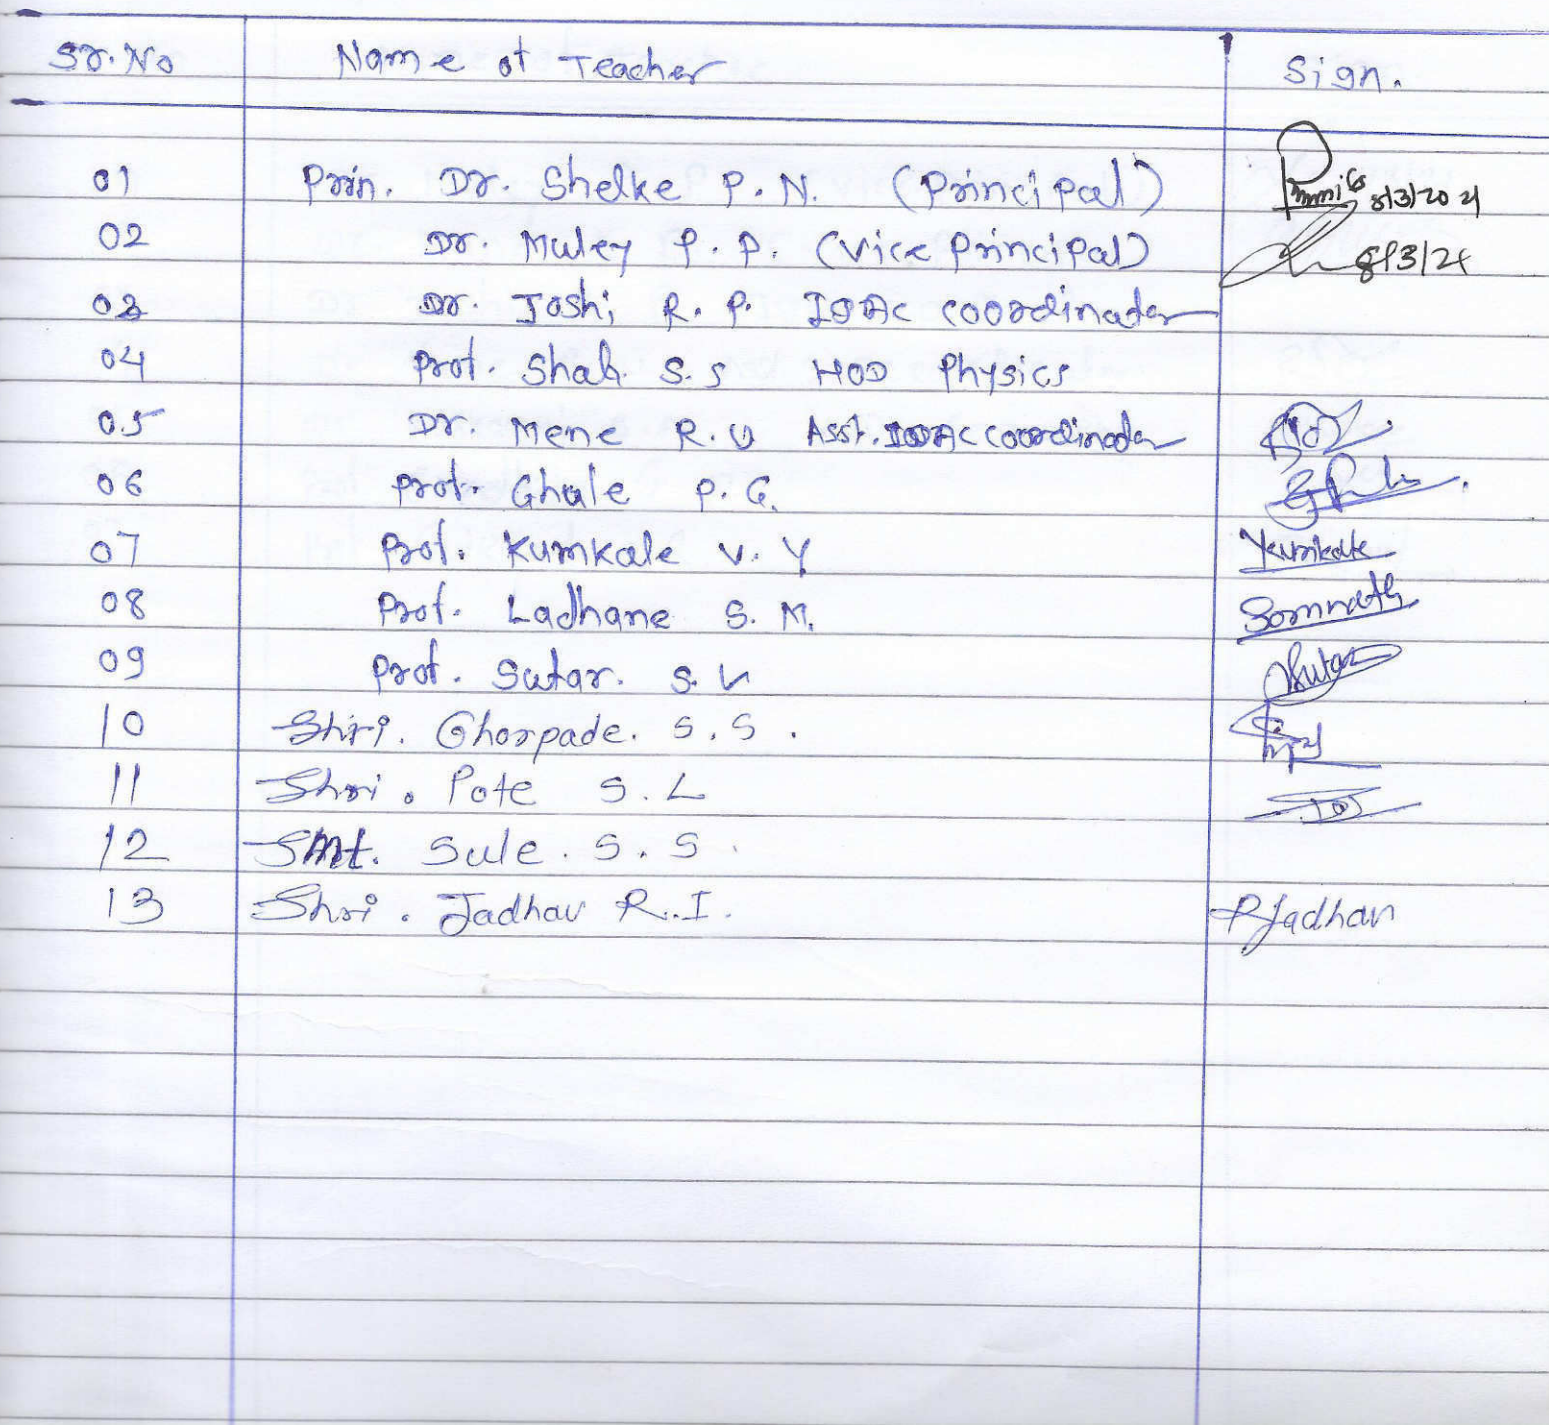 Sr.No Name of Teacher Sign.
01 Prin. Dr. Shelke P.N. (Principal) 8/3/2021
02 Dr. Muley P.P. (Vice Principal) 8/3/21
03 Dr. Joshi R.P. IQAC Coordinator
04 Prof. Shah S.S HOD Physics
05 Dr. Mene R.U Asst. IQAC Coordinator
06 Prof. Ghule P.G.
07 Prof. Kumkale V.Y Ykumkale
08 Prof. Ladhane S.M. Somnath
09 Prof. Sutar. S.V Sutar
10 Shri. Ghorpade. S.S.
11 Shri. Pote S.L
12 Smt. Sule. S.S.
13 Shri. Jadhav R.I. RJadhav